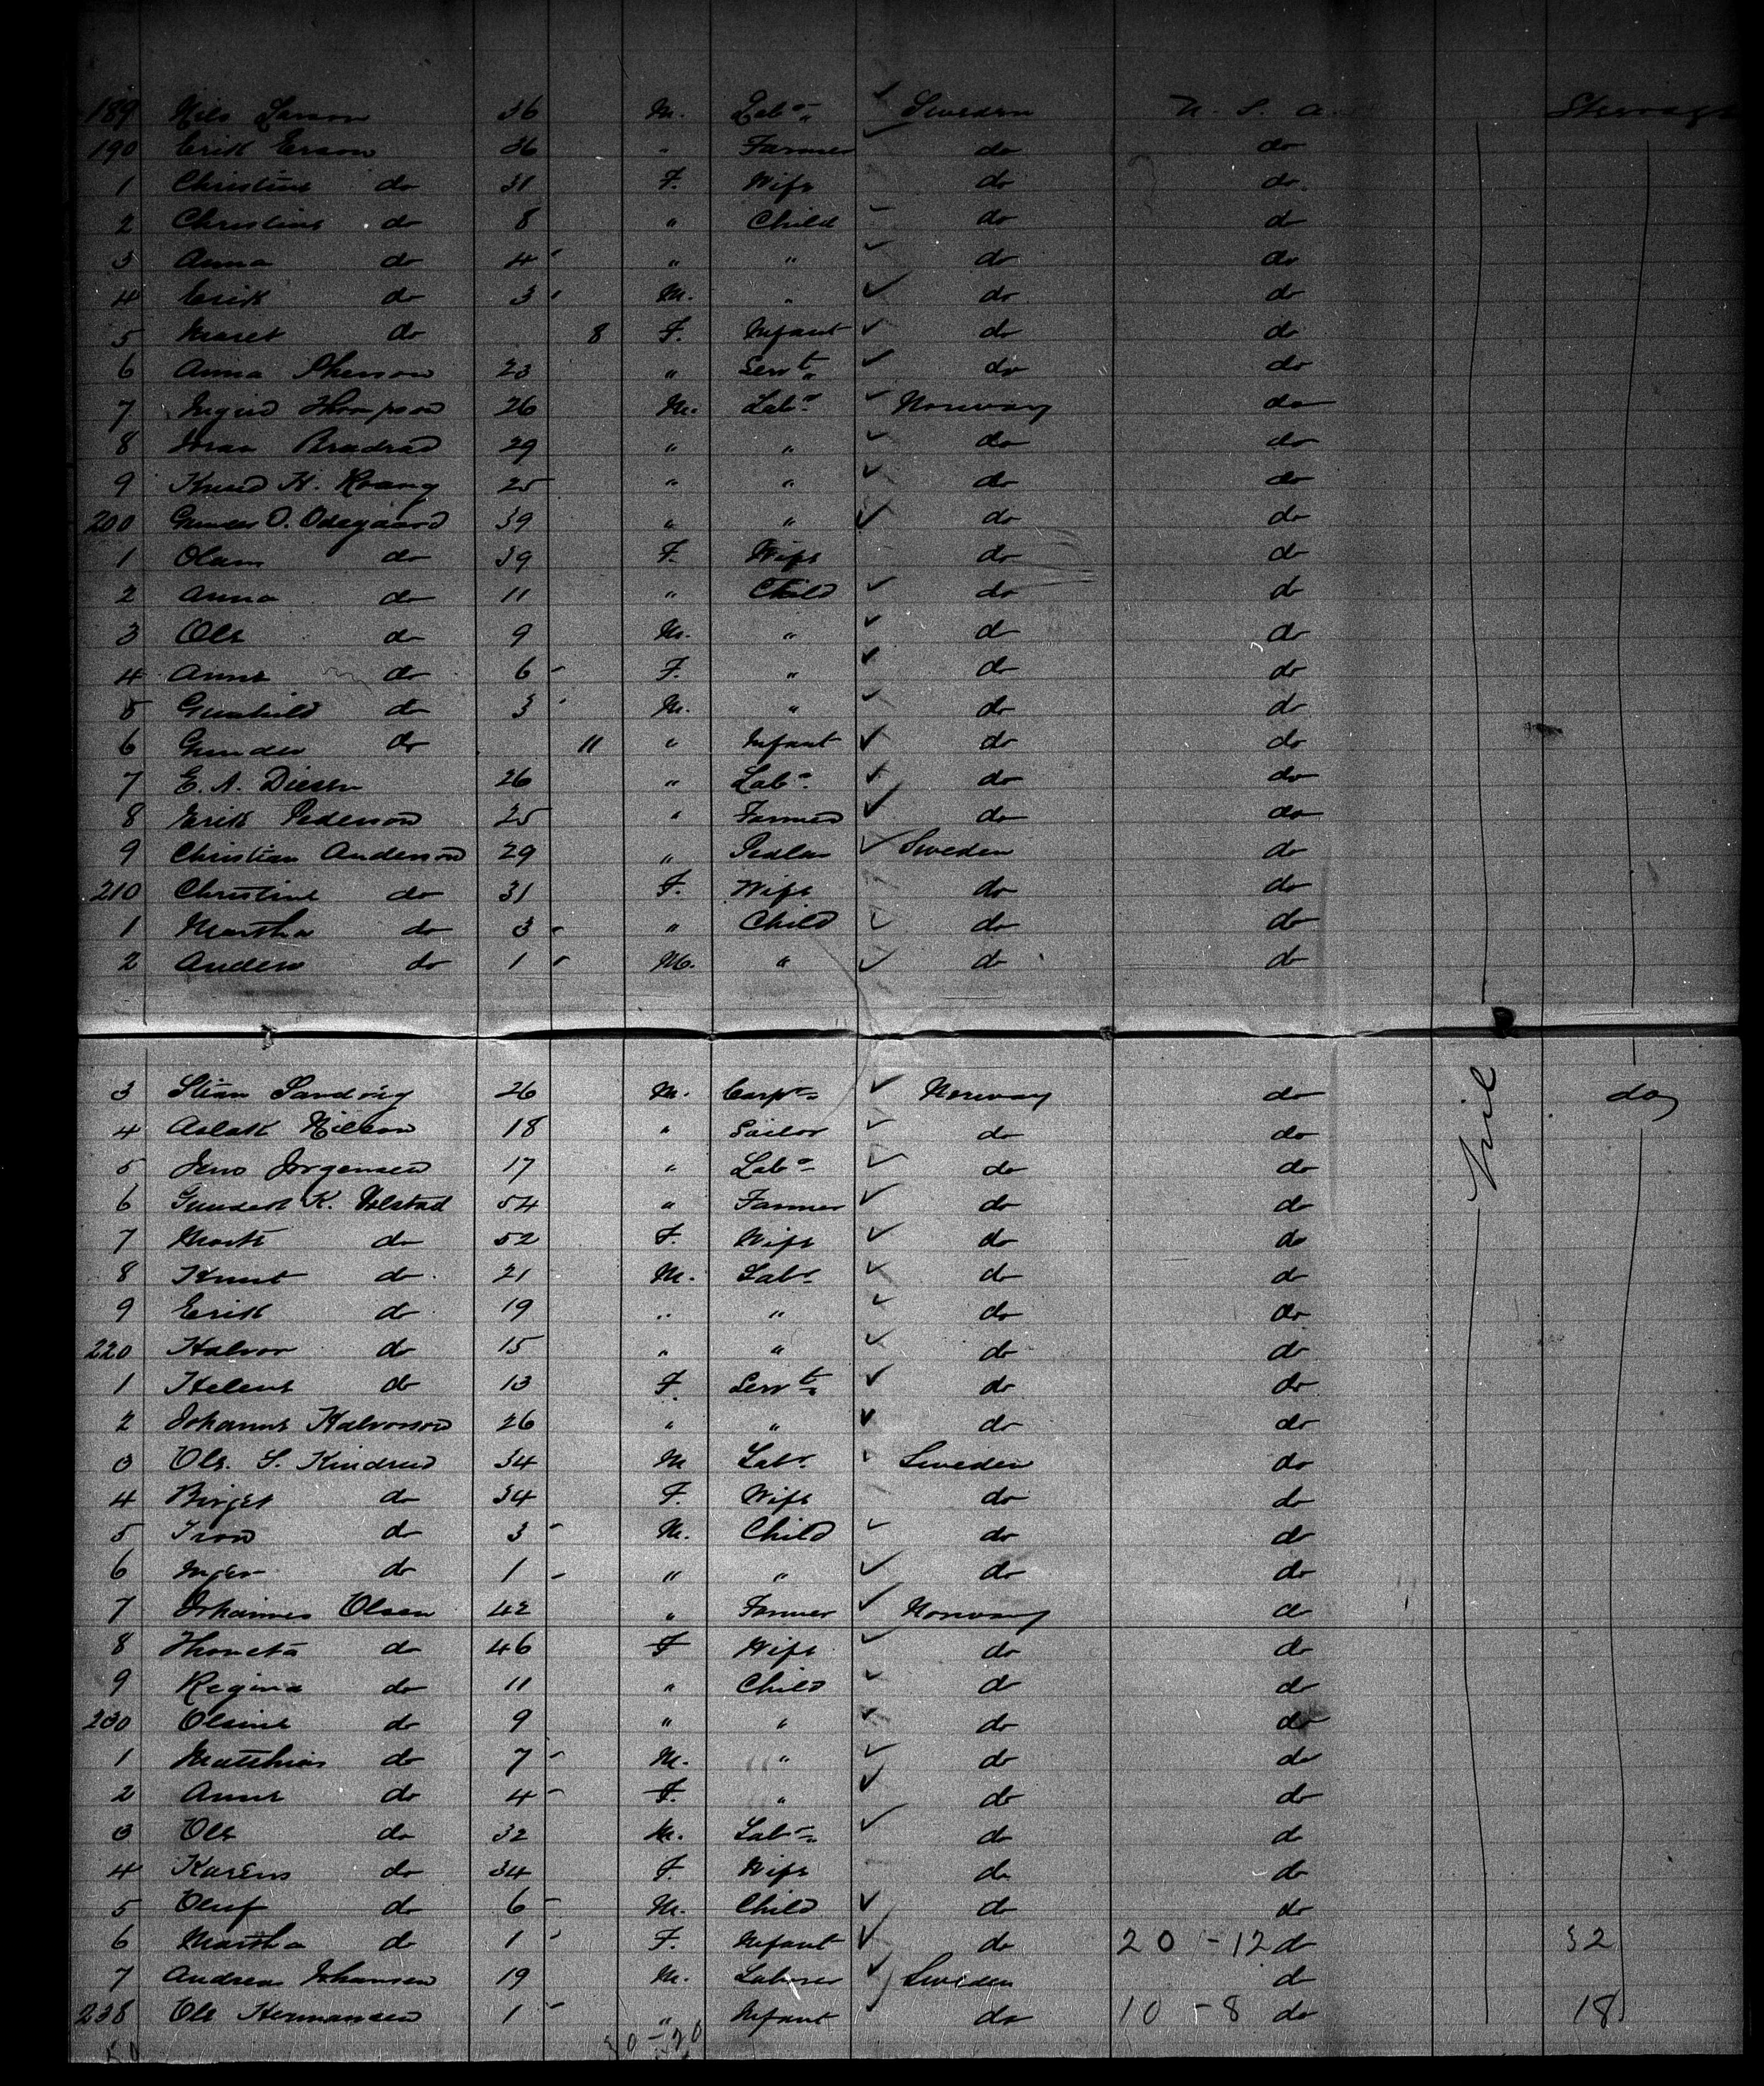 189 Nils Larson 36 M. Lab. Sweden U. S. A. Steerage
190 Erik Erson 36 " Farmer do do
1 Christine do 31 F. Wife do do
2 Christine do 8 " Child do do
3 Anna do 4 " " do do
4 Erik do 3 M. " do do
5 Maret do 8 F. Infant do do
6 Anna 23 " Servt do do
7 Thompson 26 M. Lab. Norway do
8 29 " " do do
9 Knud K. 25 " " do do
200 Gunder O. Odegaard 39 " " do do
1 do 39 F. Wife do do
2 Anna do 11 " Child do do
3 Ole do 9 M. " do do
4 Anne do 6 F. " do do
5 Gunhild do 3 M. " do do
6 Gunder do 11 " Infant do do
7 E. A. 26 " Lab. do do
8 Erik Pederson 25 " Farmer do do
9 Christian Anderson 29 " Pedlar Sweden do
210 Christine do 31 F. Wife do do
1 Martha do 3 " Child do do
2 Anders do 1 M. " do do
3 Sandvig 26 M. Carptr Norway do do
4 Aslak Nilson 18 " Sailor do do
5 Jens Jorgensen 17 " Lab. do do Nil
6 K. 54 " Farmer do do
7 do 52 F. Wife do do
8 Knut do 21 M. Lab. do do
9 Erik do 19 " " do do
220 Halvor do 15 " " do do
1 Helene do 13 F. Servt do do
2 Johanne Halvorson 26 " " do do
3 Ole S. Kindred 34 M Lab. Sweden do
4 Birget do 34 F. Wife do do
5 do 3 M. Child do do
6 Inger do 1 " " do do
7 Johannes Olsen 42 " Farmer Norway do
8 do 46 F Wife do do
9 Regina do 11 " Child do do
230 Olsine do 9 " " do do
1 Matthias do 7 M. " do do
2 Anne do 4 F. " do do
3 Ole do 32 M. Lab. do do
4 do 34 F. Wife do do
5 Oluf do 6 M. Child do do
6 Martha do 1 F. Infant do 20 - 12 do 32
7 Andreas Johansen 19 M. Laborer Sweden do
238 Ole Hermansen 1 " Infant do 10 - 8 do 18
30 - 20